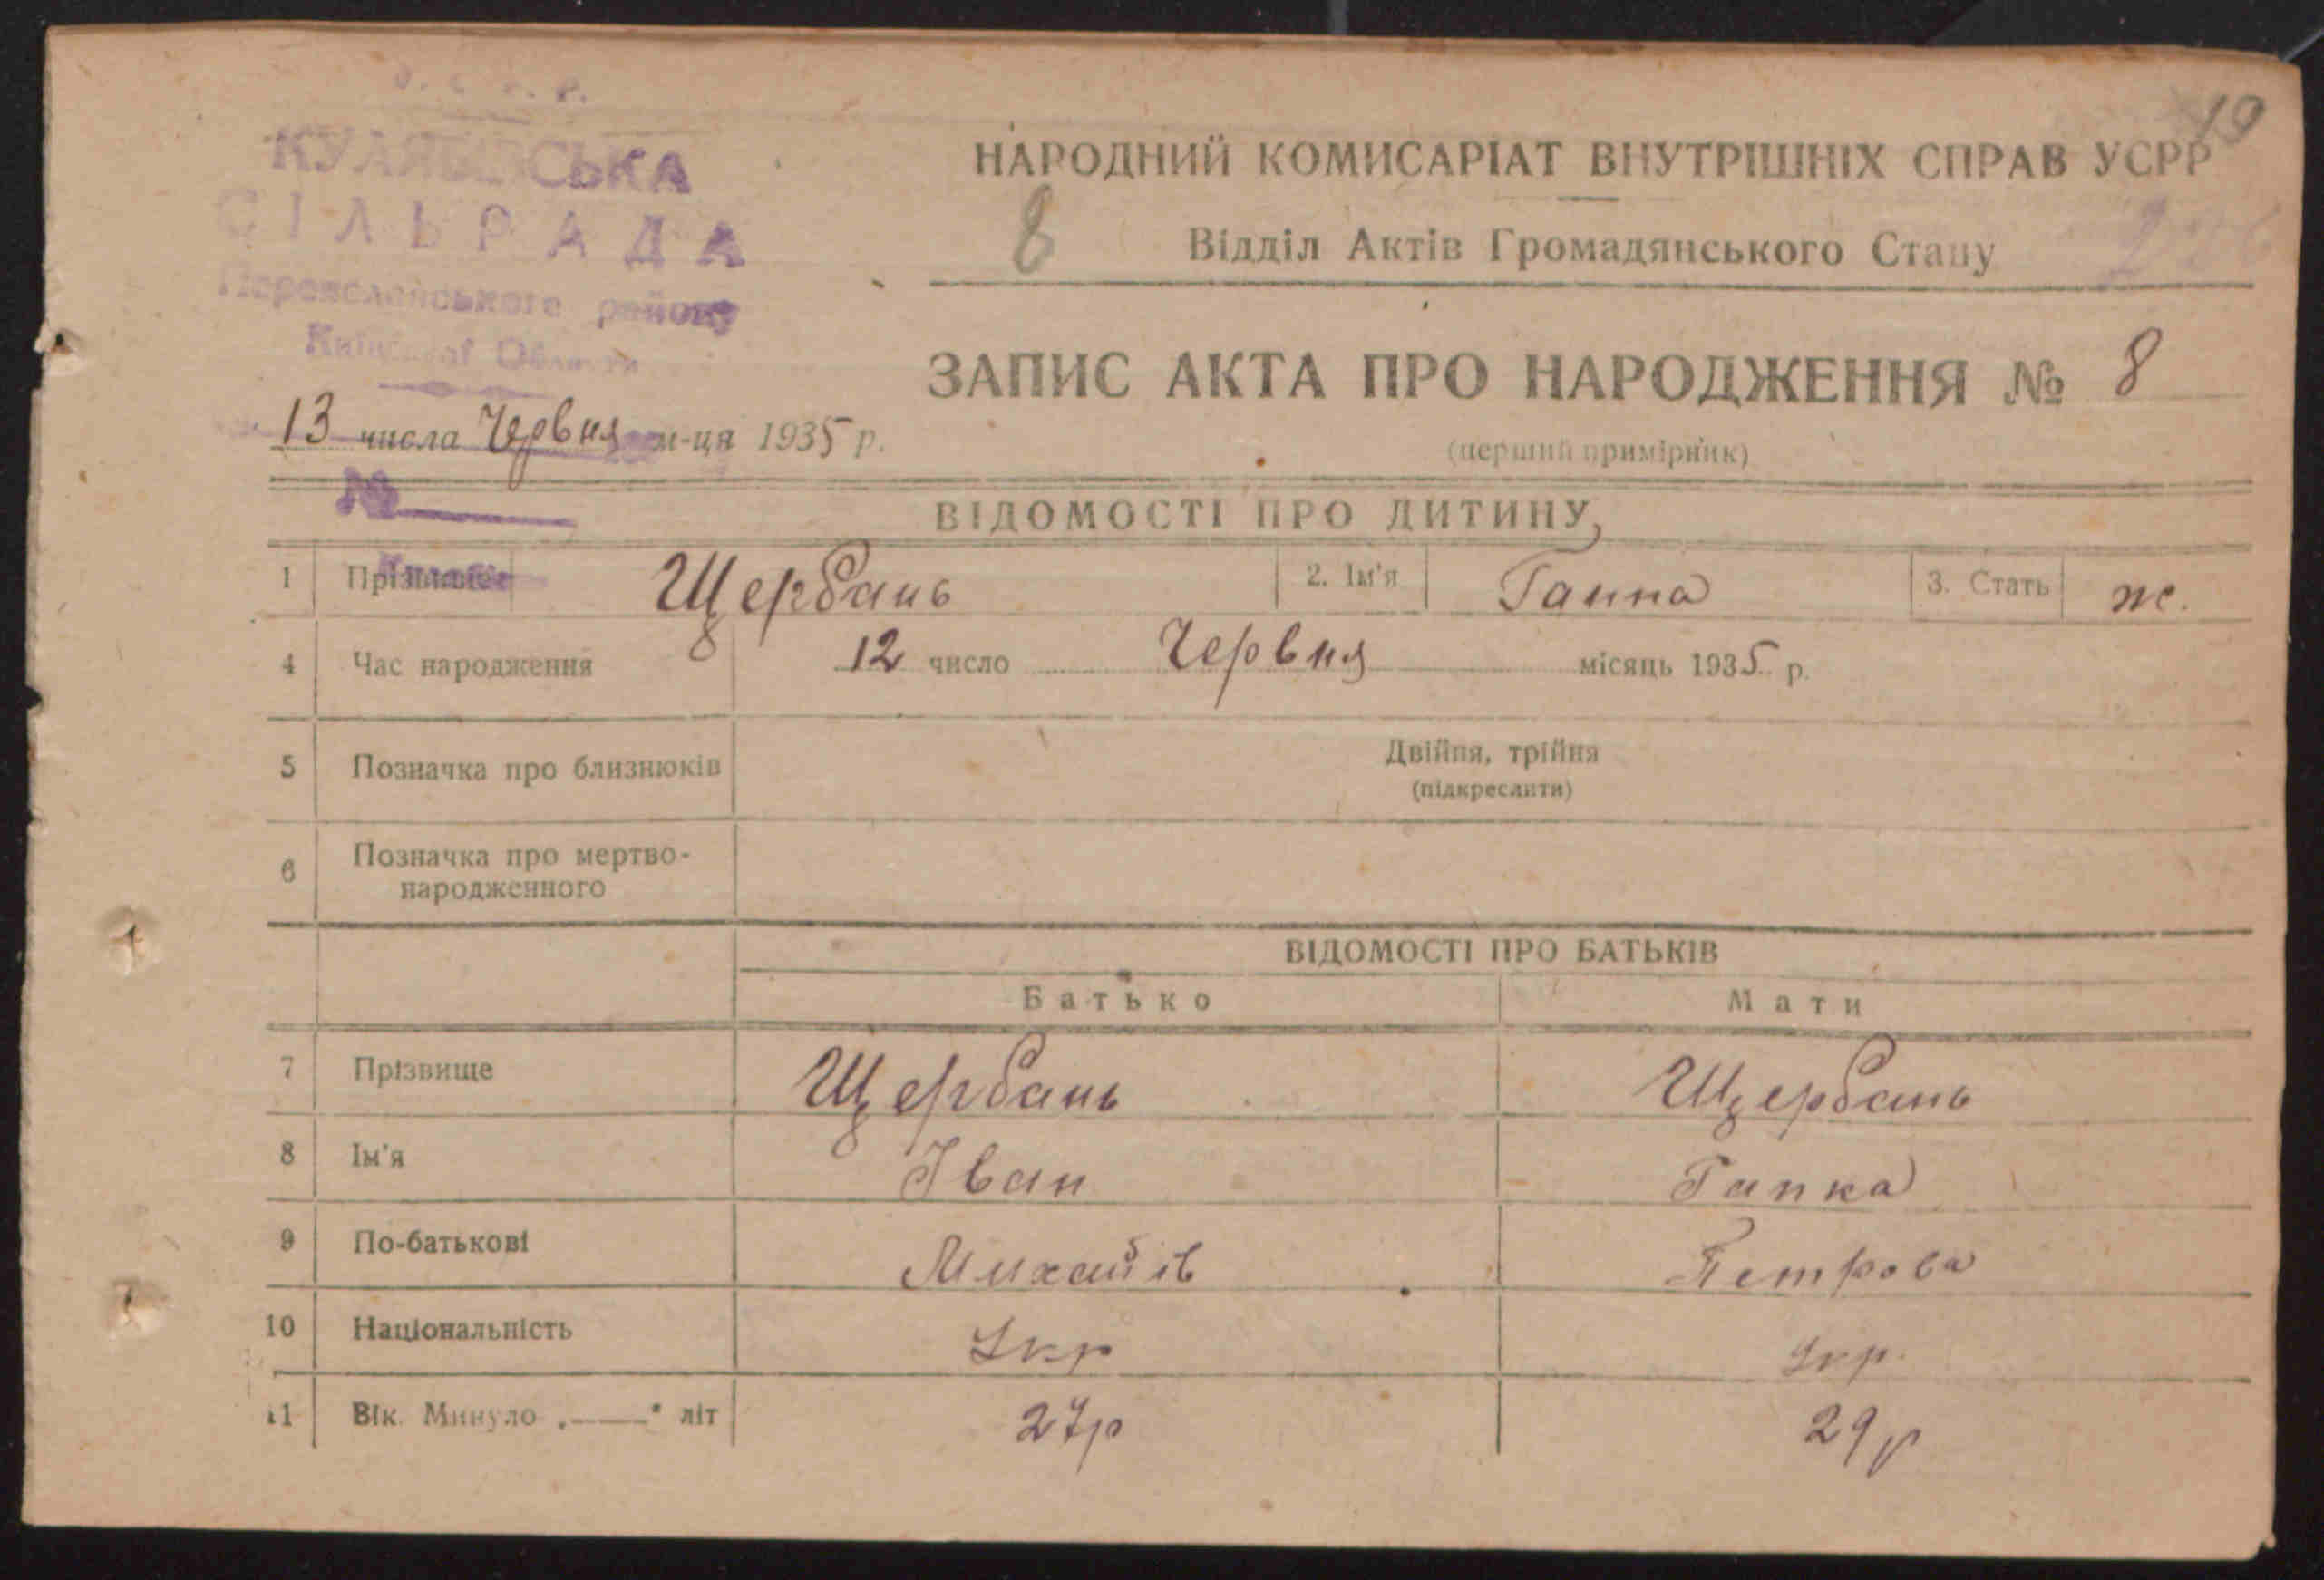 У. С. Р. Р.
СЬКА
СІЛЬРАДА
Переяславського району
Київської Області
13 числа Червня м-ця 1935 р.
№
19
НАРОДНИЙ КОМИСАРІАТ ВНУТРІШНІХ СПРАВ УСРР
8 Відділ Актів Громадянського Стану
ЗАПИС АКТА ПРО НАРОДЖЕННЯ № 8
(перший примірник)
ВІДОМОСТІ ПРО ДИТИНУ
1 Прізвище Щербань 2. Ім'я Ганна 3. Стать ж.
4 Час народження 12 число Червня місяць 1935 р.
5 Позначка про близнюків Двійня, трійня
(підкреслити)
6 Позначка про мертво-
народженного
ВІДОМОСТІ ПРО БАТЬКІВ
Батько Мати
7 Прізвище Щербань Щербань
8 Ім'я Іван Гапка
9 По-батькові Михайлів Петрова
10 Національність Укр Укр.
11 Вік. Минуло „——" літ 27р 29р